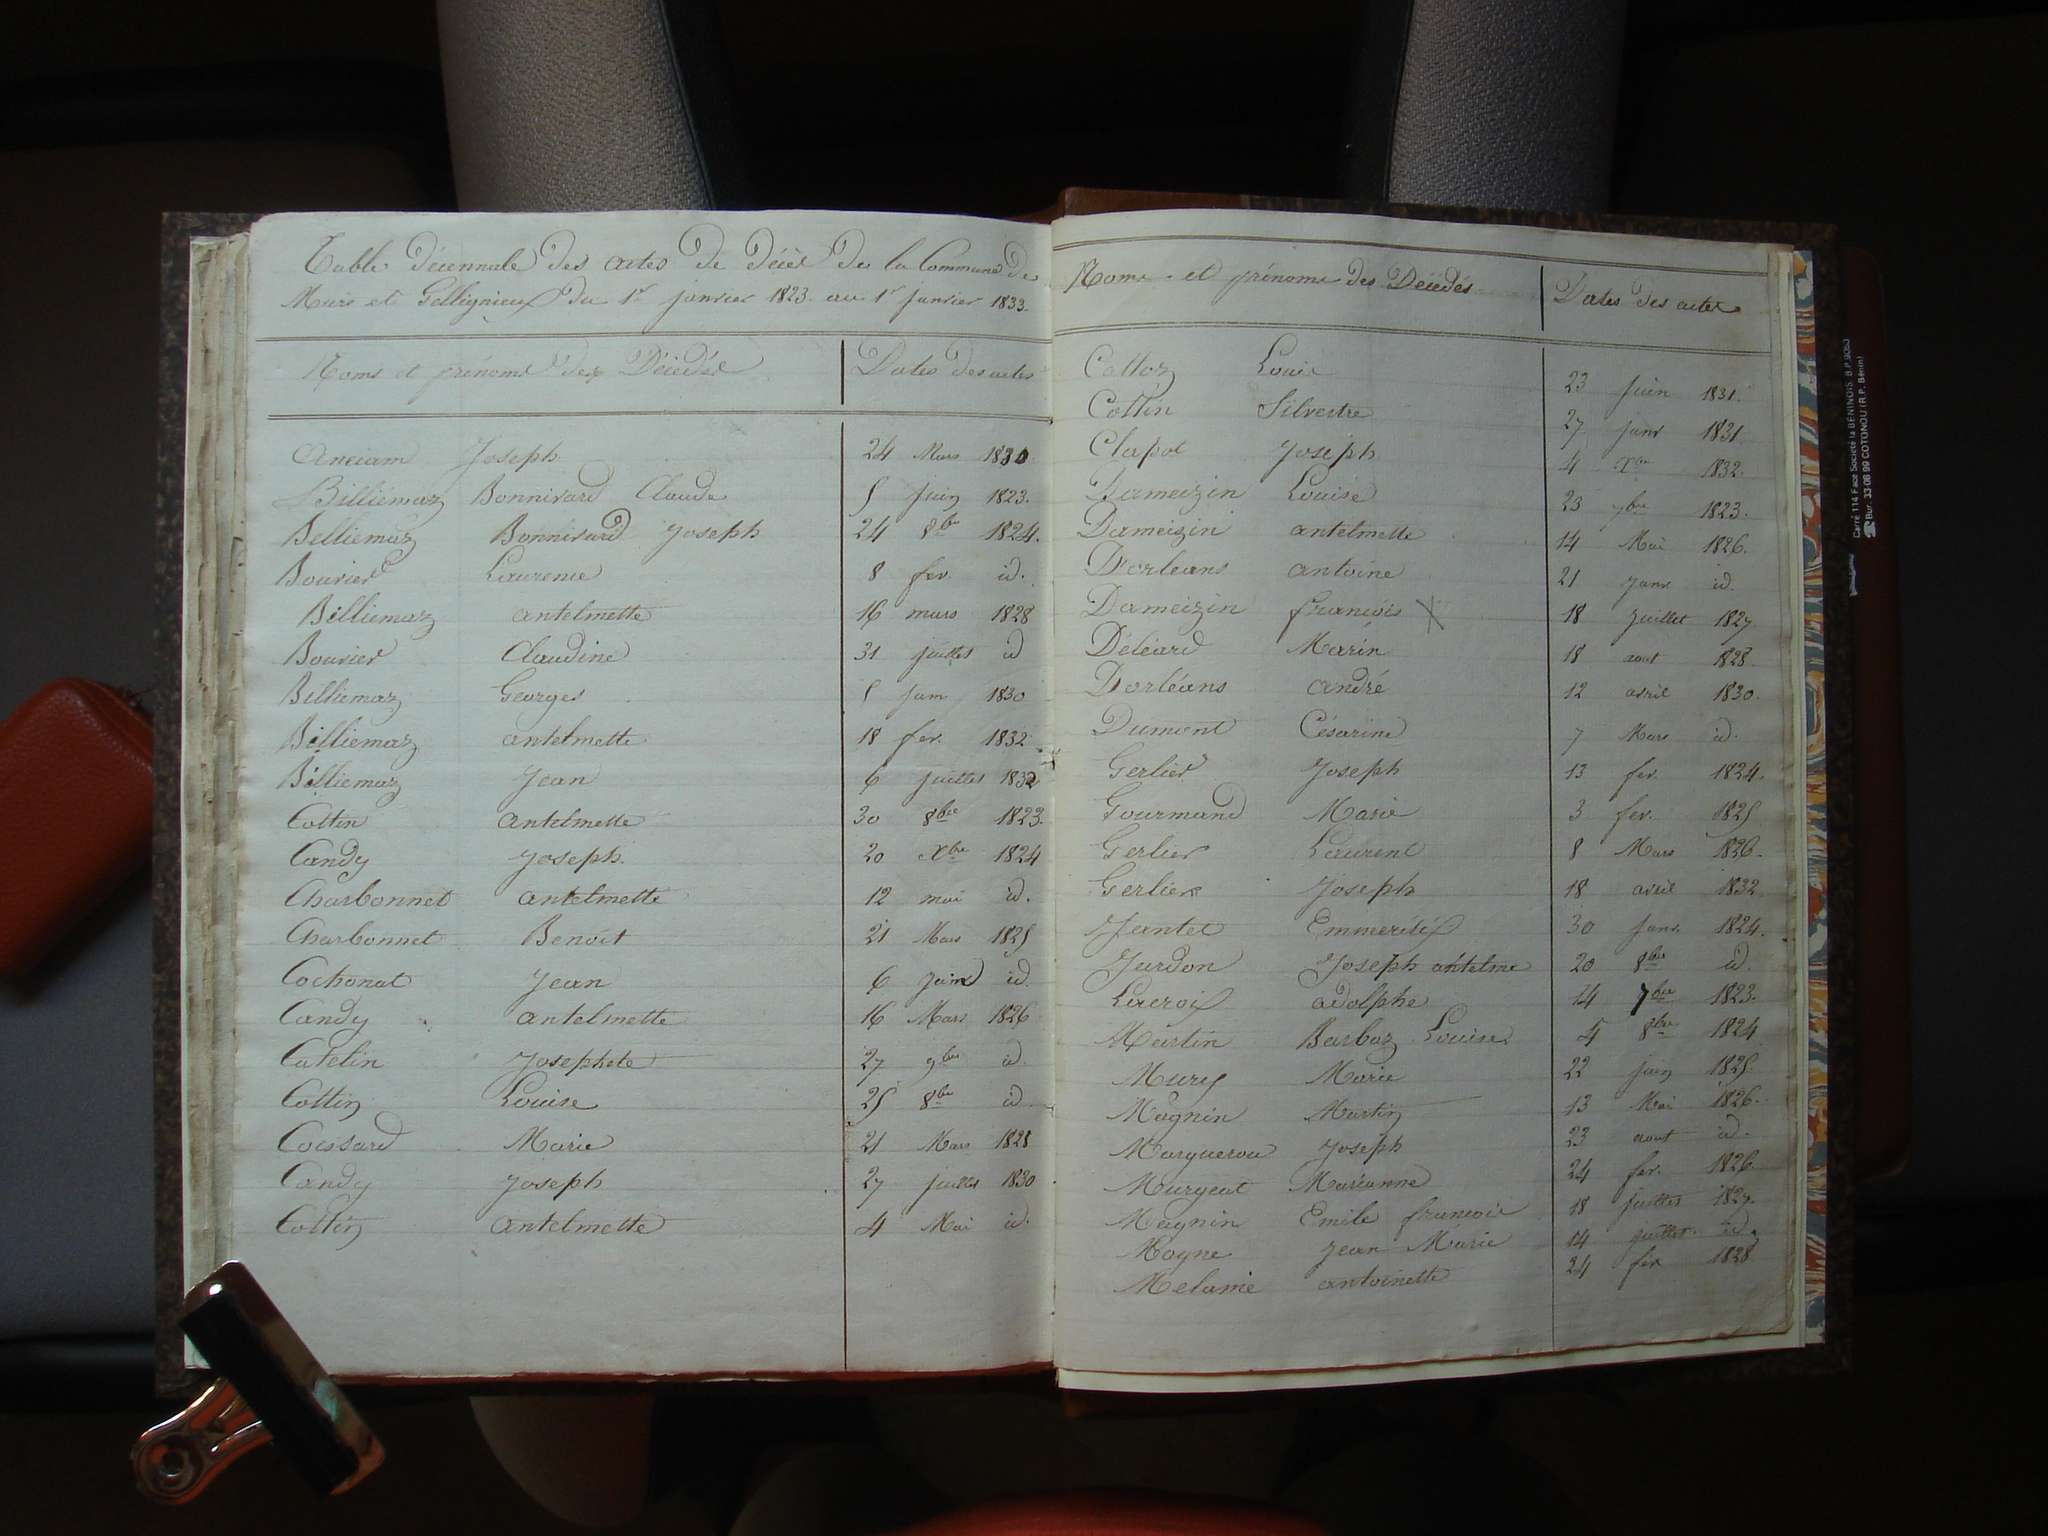 Table décennale des actes de décès de la Commune de
Murs et Gellignieux du 1er janvier 1823 au 1er janvier 1833.
Noms et prénoms des Décédés Dates des actes
Anciam Joseph 24 Mars 1830
Billiemaz Bonnivard Claude 5 Juin 1823.
Belliemaz Bonnivard Joseph 24 8bre 1824.
Bouvier Laurence 8 fev. id.
Billiemaz antelmette 16 mars 1828
Bouvier Claudine 31 juillet id
Billiemaz Georges 5 Jan 1830
Billiemaz antelmette 18 fev. 1832
Billiemaz Jean 6 juillet 1832
Cottin antelmette 30 8bre 1823.
Candy Joseph. 20 Xbre 1824
Charbonnet antelmette 12 mai id.
Charbonnet Benoit 21 Mars 1825
Cochonat Jean 6 Juin id.
Candy antelmette 16 Mars 1826
Catelin Josephete 27 9bre id.
Cottin Louise 25 8bre id.
Coessard Marie 21 Mars 1828
Candy Joseph 27 juillet 1830
Cottin antelmette 4 Mai id.
Noms et prénoms des Décédés Dates des actes
Cottoz Louis 23 Juin 1831.
Cottin Silvestre 27 janv 1831
Clapot Joseph 4 Xbre 1832.
Dameizin Louise 23 7bre 1823.
Dameizin antelmette 14 Mai 1826.
D'orleans antoine 21 janv. id.
Dameizin francois X 18 juillet 1827
Déléard Marin 18 aout 1828.
Dorléans andré 12 avril 1830.
Dumont Césarine 7 Mars id.
Gerlier Joseph 13 fev. 1824.
Gourmand Marie 3 fev. 1825
Gerlier Laurent 8 Mars 1826.
Gerlier Joseph 18 avril 1832
Jantet 30 Janv. 1824.
Jurdon Joseph antelme 20 8bre id.
Lacroix adolphe 14 7bre 1823.
Martin Barbaz Louise 4 8bre 1824
Murys Marie 22 juin 1825.
Magnin Martin 13 Mai 1826.
Marguerou Joseph 23 aout id.
Murgeat Marianne 24 fev. 1826
Magnin Emile francois 18 juillet 1827.
Moyne Jean Marie 14 juillet id.
Melanie antoinette 24 fev 1828
Carré 114 Face Société la BÉNINOIS, B.P. 9063
☎ Bur. 33-06 99 COTONOU (R.P. Bénin)